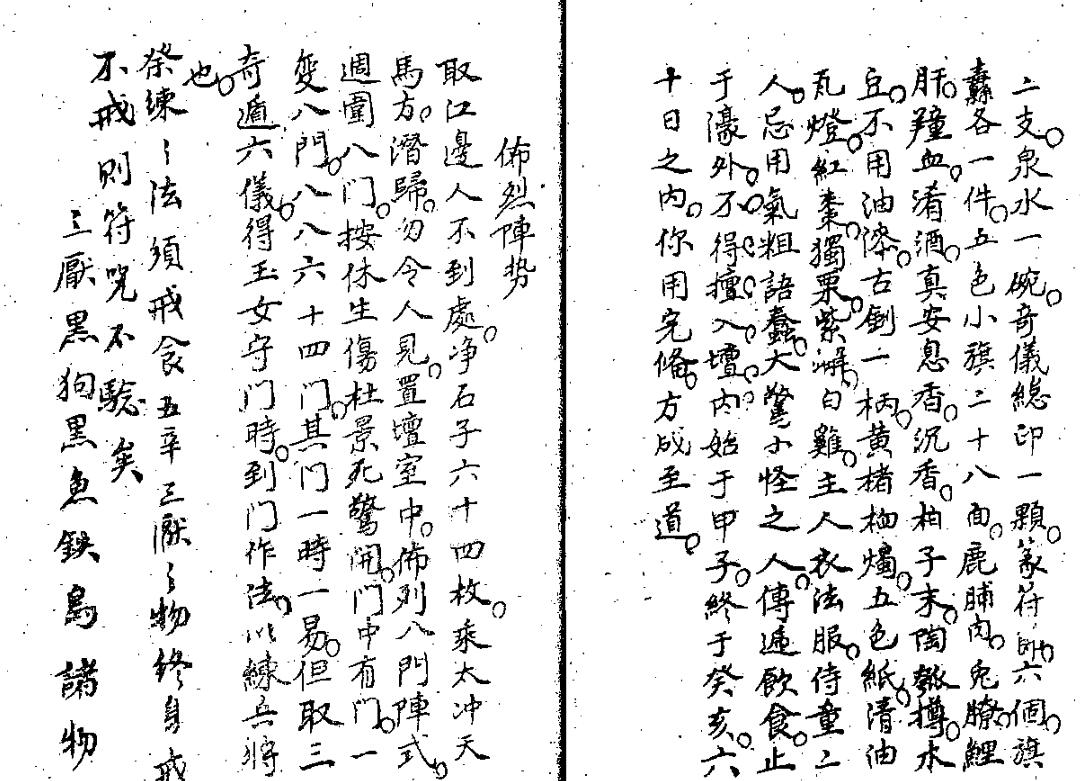 二支。泉水一碗。奇儀總印一顆。篆符印。六個。旗
纛各一件。五色小旗二十八面。鹿脯肉。兔膫。鯉
肝。羶血。淆酒。真安息香。沉香。柏子末。陶瓠樽。木
豆。不用油漆。古劍一柄。黃楮。桕燭。五色紙。清油
瓦燈。紅棗。獨栗。紫澥。白雞。主人衣法服。侍童二
人。忌用氣粗語蠢。大驚小怪之人。傳遞飲食。止
于濠外。不得擅入壇內。始于甲子。終于癸亥。六
十日之內。你用完俻。方成至道。
佈烈陣势
取江邊人不到處。净石子六十四枚。乘太冲天
馬方。潛歸。勿令人見。置壇室中。佈列八門陣式。
週圍八门。按休生傷杜景死驚開。门中有门。一
變八門。八八六十四门。其门一時一易。但取三
奇遁六儀。得玉女守门時。到门作法。以練兵將
也。
祭練〻法須戒食五辛三厭〻物終身戒
不戒則符咒不驗矣
三厭黑狗黑魚鉄鳥諸物